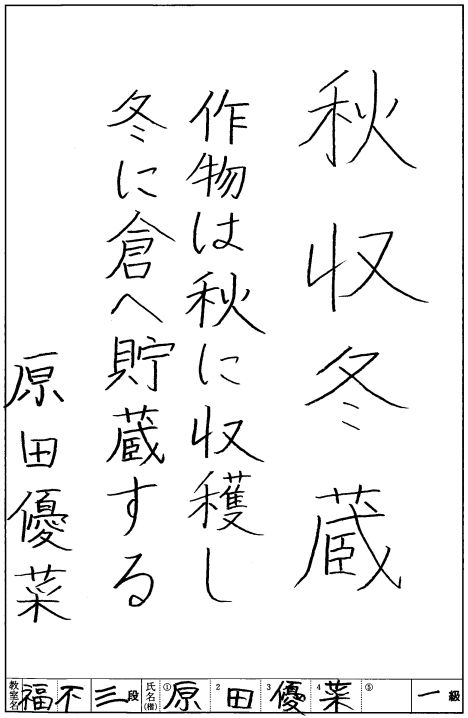 秋収冬蔵
作物は秋に収穫し
冬に倉へ貯蔵する
原田優菜
教室名 福不三段 氏名(権) ①原 2田 3優 4菜 ⑤ 一級